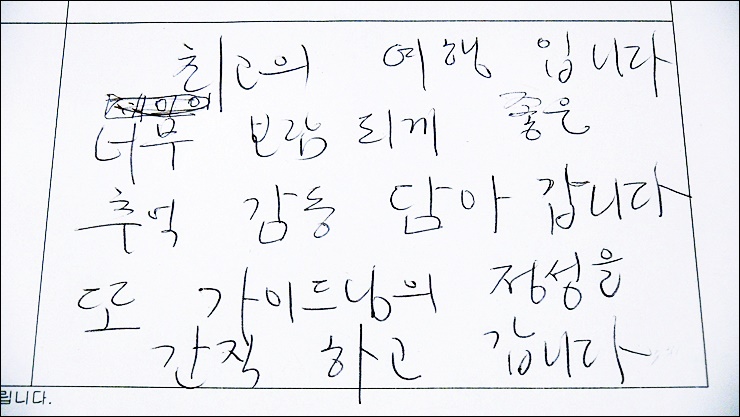 최고의 여행 입니다
너무 보람 되게 좋은
추억 감동 담아 갑니다
또 가이드님의 정성을
간직 하고 갑니다
립니다.